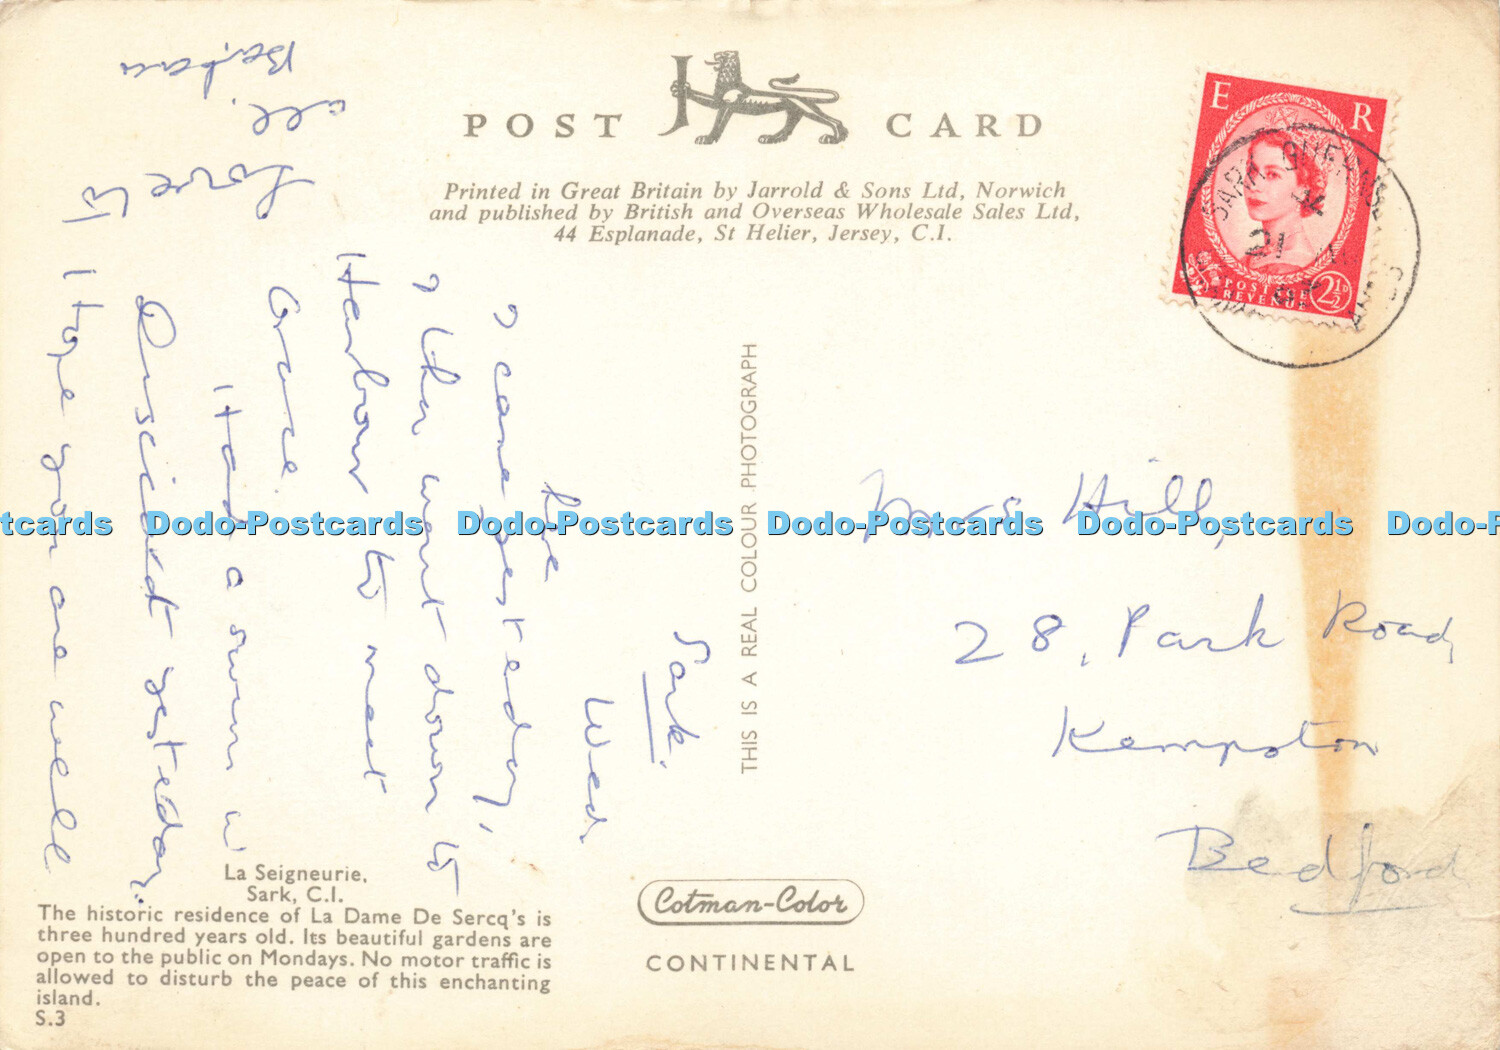 POST CARD
Printed in Great Britain by Jarrold & Sons Ltd, Norwich
and published by British and Overseas Wholesale Sales Ltd,
44 Esplanade, St Helier, Jersey, C.I.
E R
POSTAGE
REVENUE
2½D
SARK GUERNSEY
21
Sark.
Wed.
We
I came yesterday,
I then went down to
Harbour to meet
Grace
Had a swim
yesterday.
I Hope you are well
Love to
all,
Barbara
THIS IS A REAL COLOUR PHOTOGRAPH
Mrs Hill,
28, Park Road,
Kempston
Bedford
La Seigneurie,
Sark, C.I.
The historic residence of La Dame De Sercq's is
three hundred years old. Its beautiful gardens are
open to the public on Mondays. No motor traffic is
allowed to disturb the peace of this enchanting
island.
S.3
Cotman-Color
CONTINENTAL
tcards Dodo-Postcards Dodo-Postcards Dodo-Postcards Dodo-Postcards Dodo-P